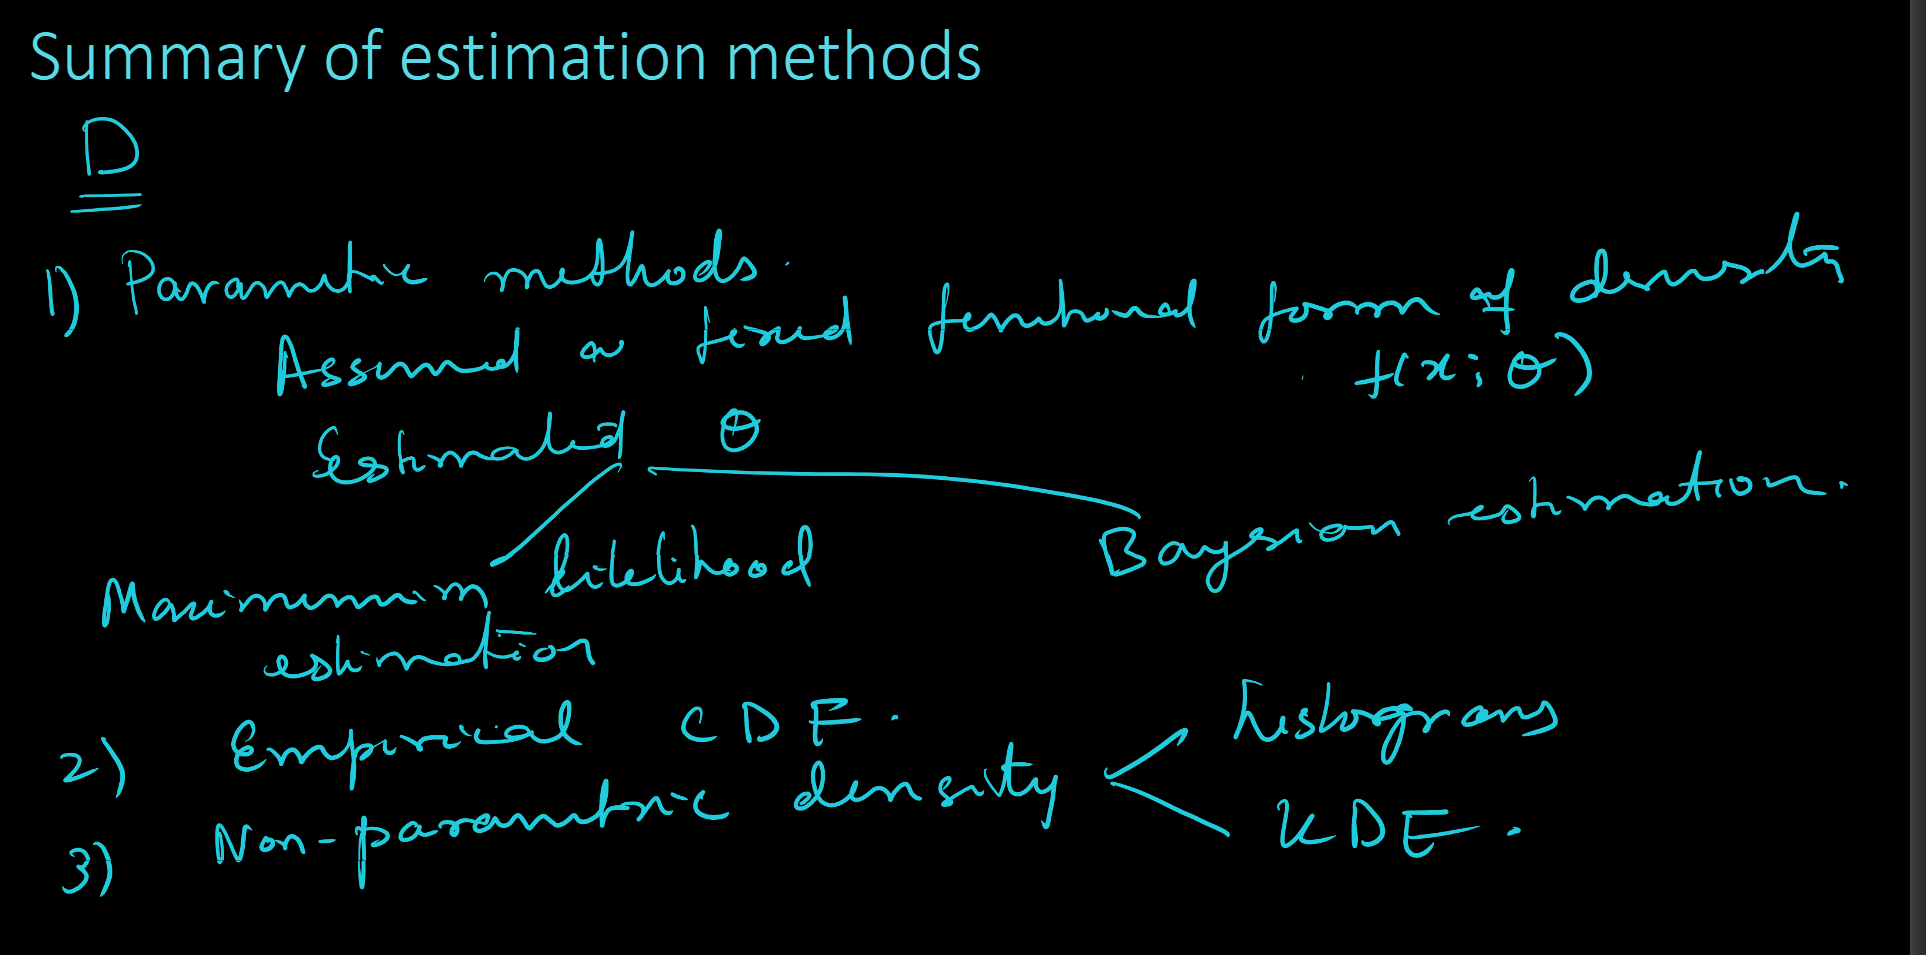 Summary of estimation methods
D
1) Parametric methods.
Assumed a fixed functional form of density
f(x; θ)
Estimated θ
Maximum likelihood
estimation
Bayesian estimation.
2) Empirical CDF.
3) Non-parametric density
histograms
KDE.